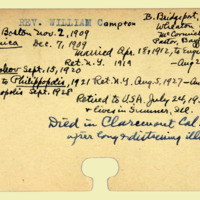 REV. WILLIAM Compton
B. Bridgeport,
Wheaton
McCormick
Pastor, Ba
Boston Nov. 2, 1909
Dec. 7, 1909
Married Apr. 18, 1912, to Eug
Ret. N.Y. 1919 - Aug
Sept. 15, 1920
to Philippopolis, 1921 Ret. N.Y., Aug. 5, 1927 - Au
opolis Sept. 1928
Retired to U.S.A. July 24, 19
& lives in Sumner, Ill.
Died in Claremont Cal.
after long & distressing ill